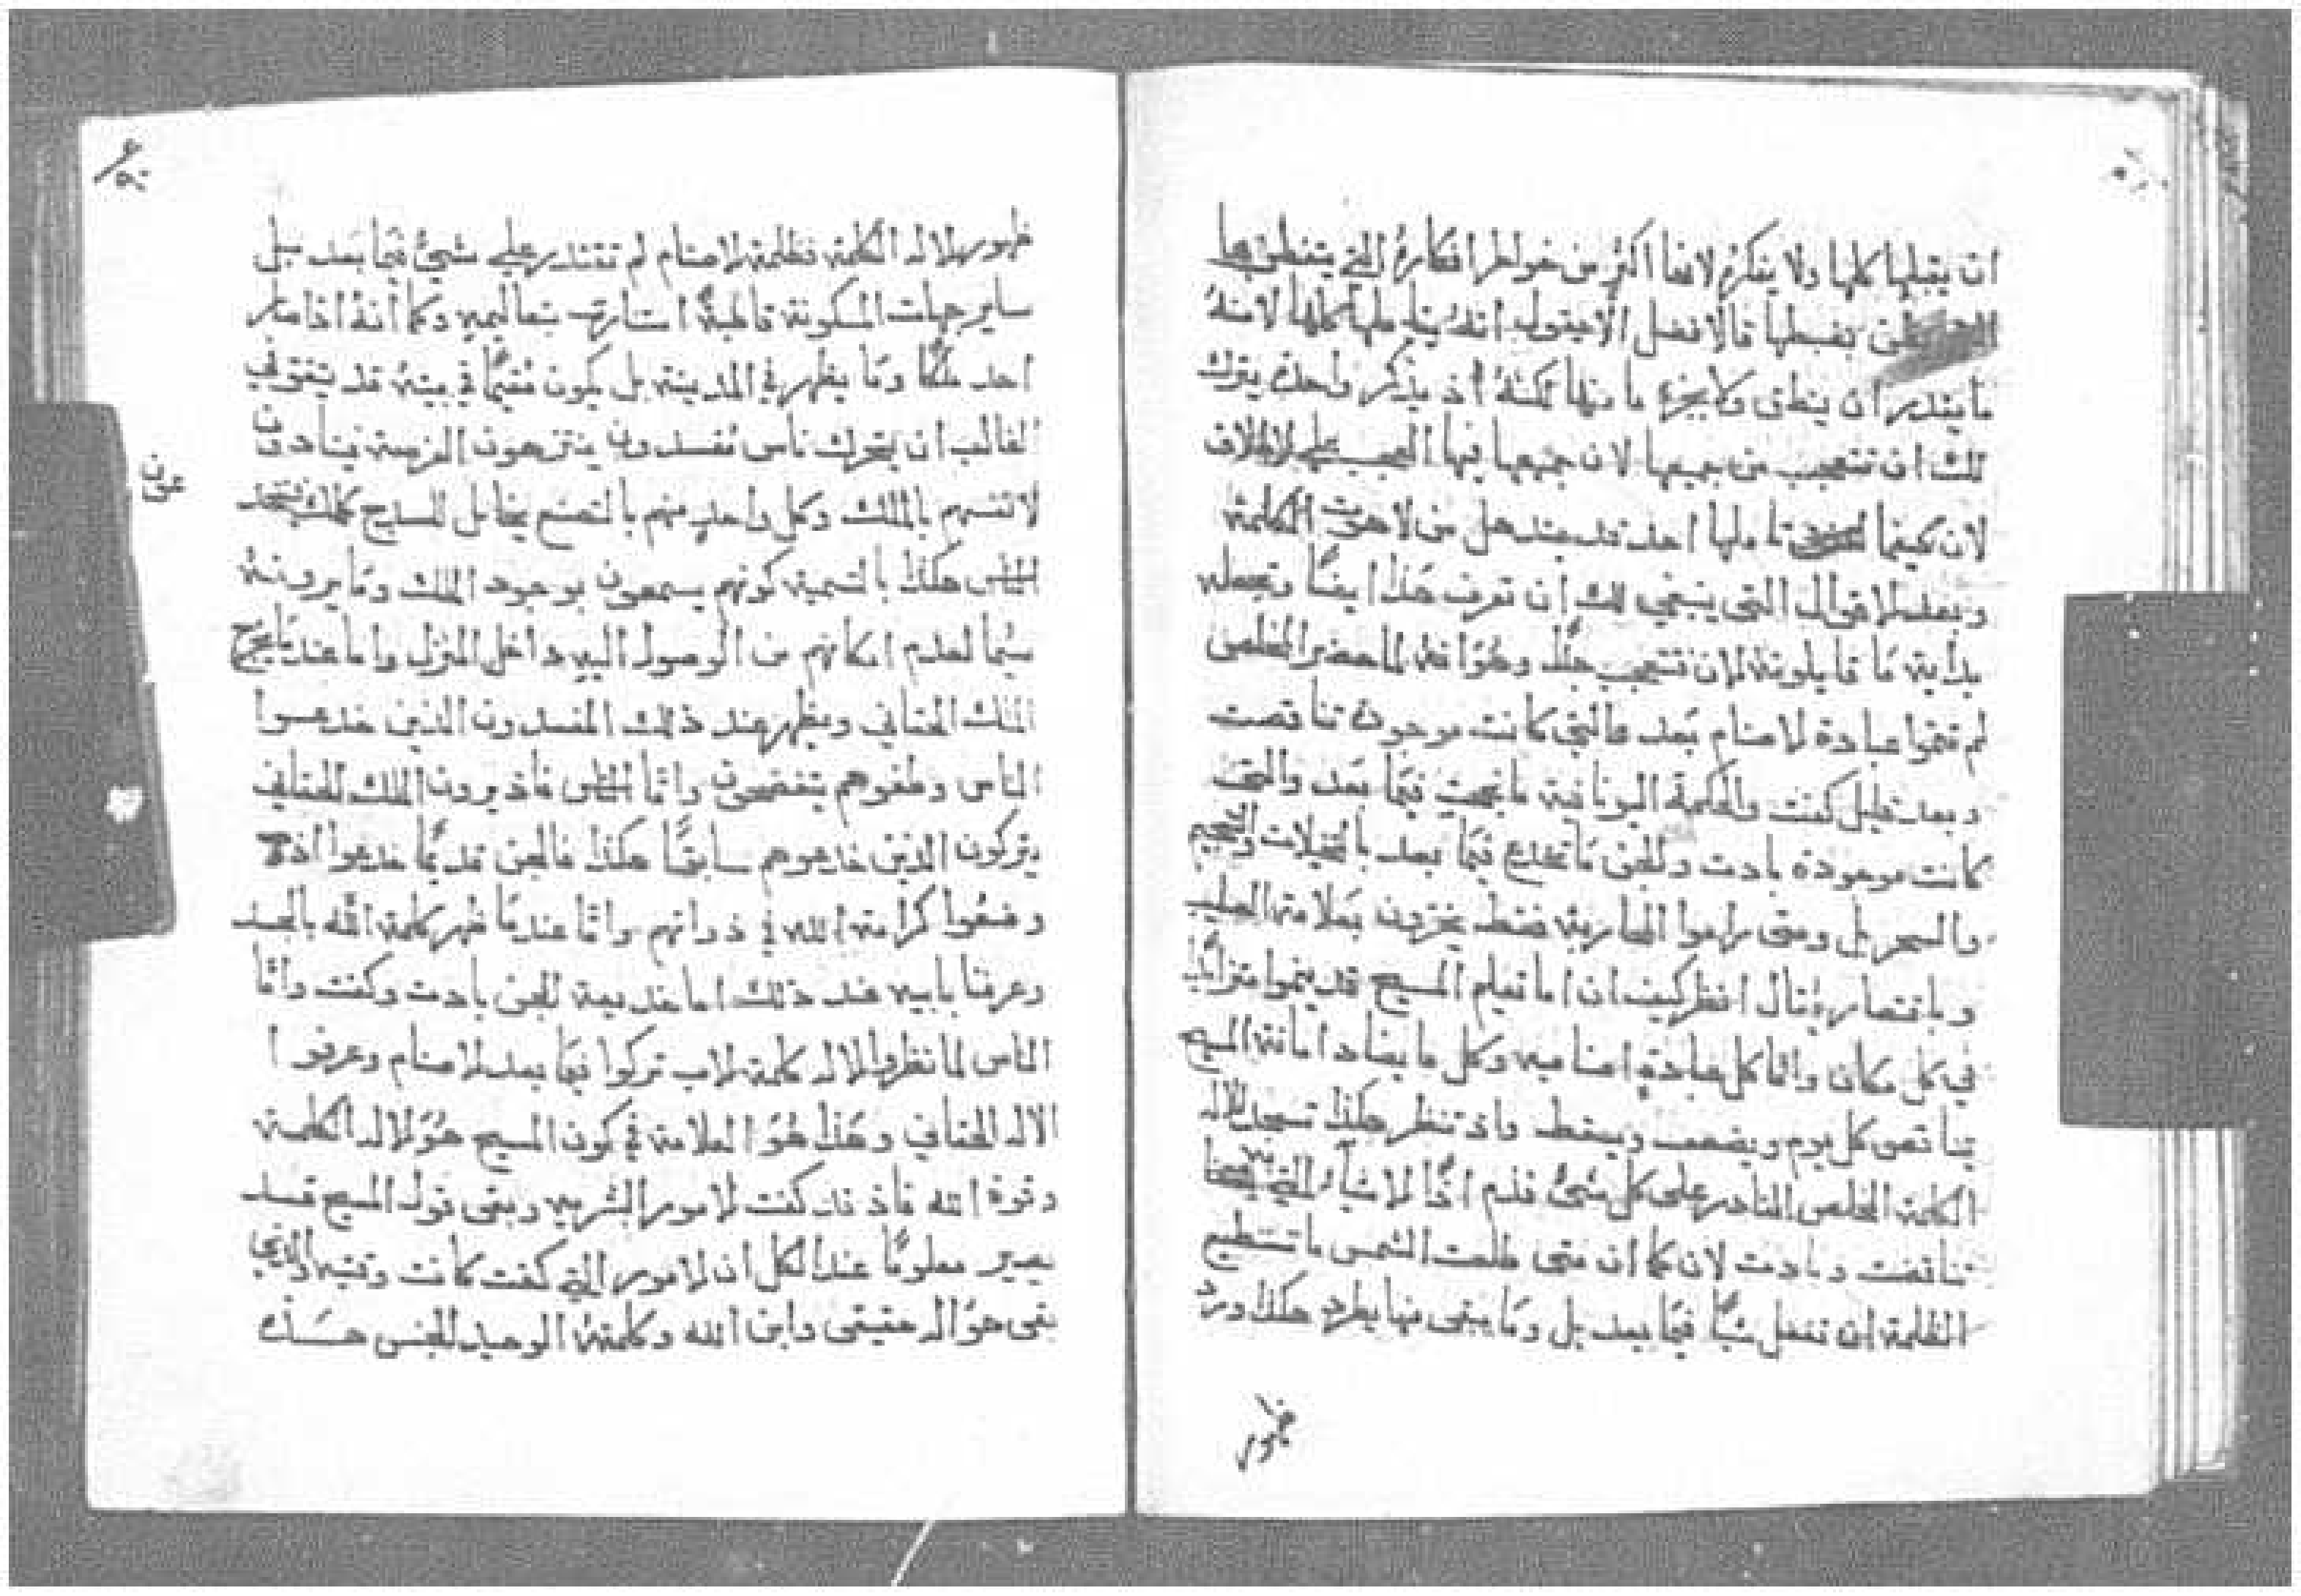 ان يقبلها كلها ولا يفكره لانها اكثر من خواطر افكاره التي يتفطن بها
يظن يضبطها فالافضل الا يقول انه يتاملها كلها لانه
ما يقدر ان ينطق ولا بجزء ما منها لكنه اذ يذكر واحده يترك
لك ان تتعجب من جميعها لان جميعها فيها العجب على الاطلاق
لان كيفما تاملها احد قد يندهل من لاهوت الكلمة
وبعد الاقوال التي ينبغي لك ان تعرف هذا ايضًا وتجعله
بداية ما قايلونه لان تتعجب جدًا وهو انه لما حضر المخلص
لم تنموا عبادة الاصنام بعد فالتي كانت موجوده تناقصت
وبعد قليل كفت والحكمة اليونانية ما نجحت فيما بعد والتي
كانت موجودة بادت والجن ما تخدع فيما بعد بالتخيلات والتنجيم
والسحر بل ومتى راموا المحاربة فقط يخزون بعلامة الصليب
وباقتصار يقال انظر كيف ان اما تعليم المسيح قد ينموا متزايدًا
في كل مكان واما كل عبادة اصناميه وكل ما يضاد امانة المسيح
يتناقص كل يوم ويضعف ويسقط واذ تنظر هكذا تسجد للاله
الكلمة المخلص القادر على كل شيء فلم اذًا الاشياء التي
تناقصت وبادت لان كما ان متى طلعت الشمس ما تستطيع
الظلمة ان تفعل شيًا فيما بعد بل وما يبقى منها يطرد هكذا ورد
ظهور
ظهور الاله الكلمة فظلمة الاصنام لم تقتدر على شيء فيما بعد بل
ساير جهات المسكونة قاطبةً استنارت بتعاليمه وكما انه اذا صار
احد ملكًا وما يظهر في المدينة بل يكون مقيمًا في بيته قد يتفق في
الغالب ان يتحرك ناس مفسدون ينتهزون الفرصة فينادون
لانفسهم بالملك وكل واحد منهم بالتصنع يخايل للسدج كملك
عون
الناس هكذا بالتسمية كونهم يسمعون بوجود الملك وما يرونه
سيما لعدم امكانهم من الوصول اليه داخل المنزل واما عندما يخرج
الملك الحقاني ويظهر عند ذلك المفسدون الذين خدعوا
الناس وطغوهم يتفضحون واما الناس فاذ يرون الملك الحقاني
يتركون الذين خدعوهم سابقًا هكذا فالجن قديمًا خدعوا اذ
وضعوا كرامة الله في ذواتهم واما عندما ظهر كلمة الله بالجسد
وعرفنا بابيه عند ذلك اما خديعة الجن بادت وكفت واما
الناس لما نظروا الاله كلمة الاب تركوا فيما بعد الاصنام وعرفوا
الاله الحقاني وهذا هو العلامة في كون المسيح هو الاله الكلمة
وقوة الله فاذ قد كفت الامور البشريه وبقى قول المسيح قد
يصير معلومًا عند الكل ان الامور التي كفت كانت وقتيه والذي
بقى هو اله حقيقي وابن الله وكلمته الوحيد الجنس هذه